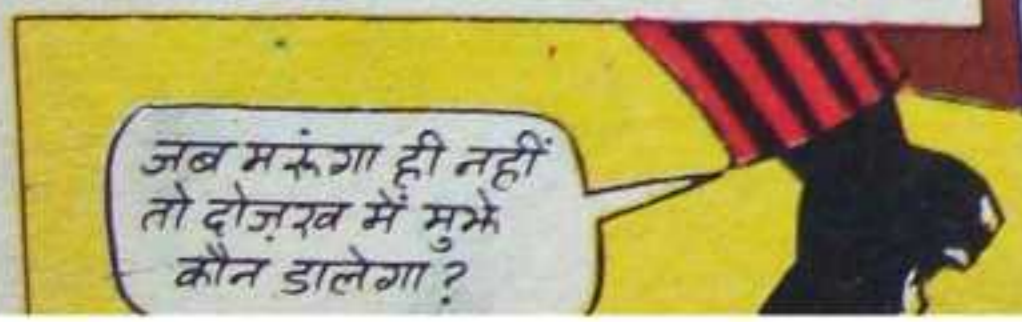 जब मरूंगा ही नहीं
तो दोज़ख में मुझे
कौन डालेगा?